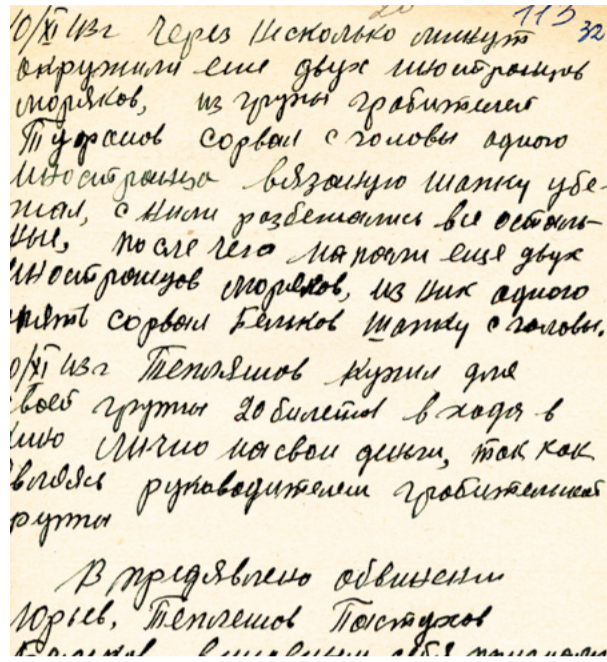 115
32
0/XI 43г Через несколько минут
окружили еще двух иностранцев
моряков, из групы грабителей
сорвал с головы одного
иностранца вязаную шапку убе-
жал, с ними разбежались все осталь-
ные, после чего напали еще двух
иностранцов моряков, из них одного
сорвал Бельков шапку с головы.
0/XI 43г Тепляшов купил для
своей групы 20 билетов входа в
кино лично на свои деньги, так как
являясь руководителем грабительской
групы
В предявлено обвинении
Юрьев, Теплешов Пастухов